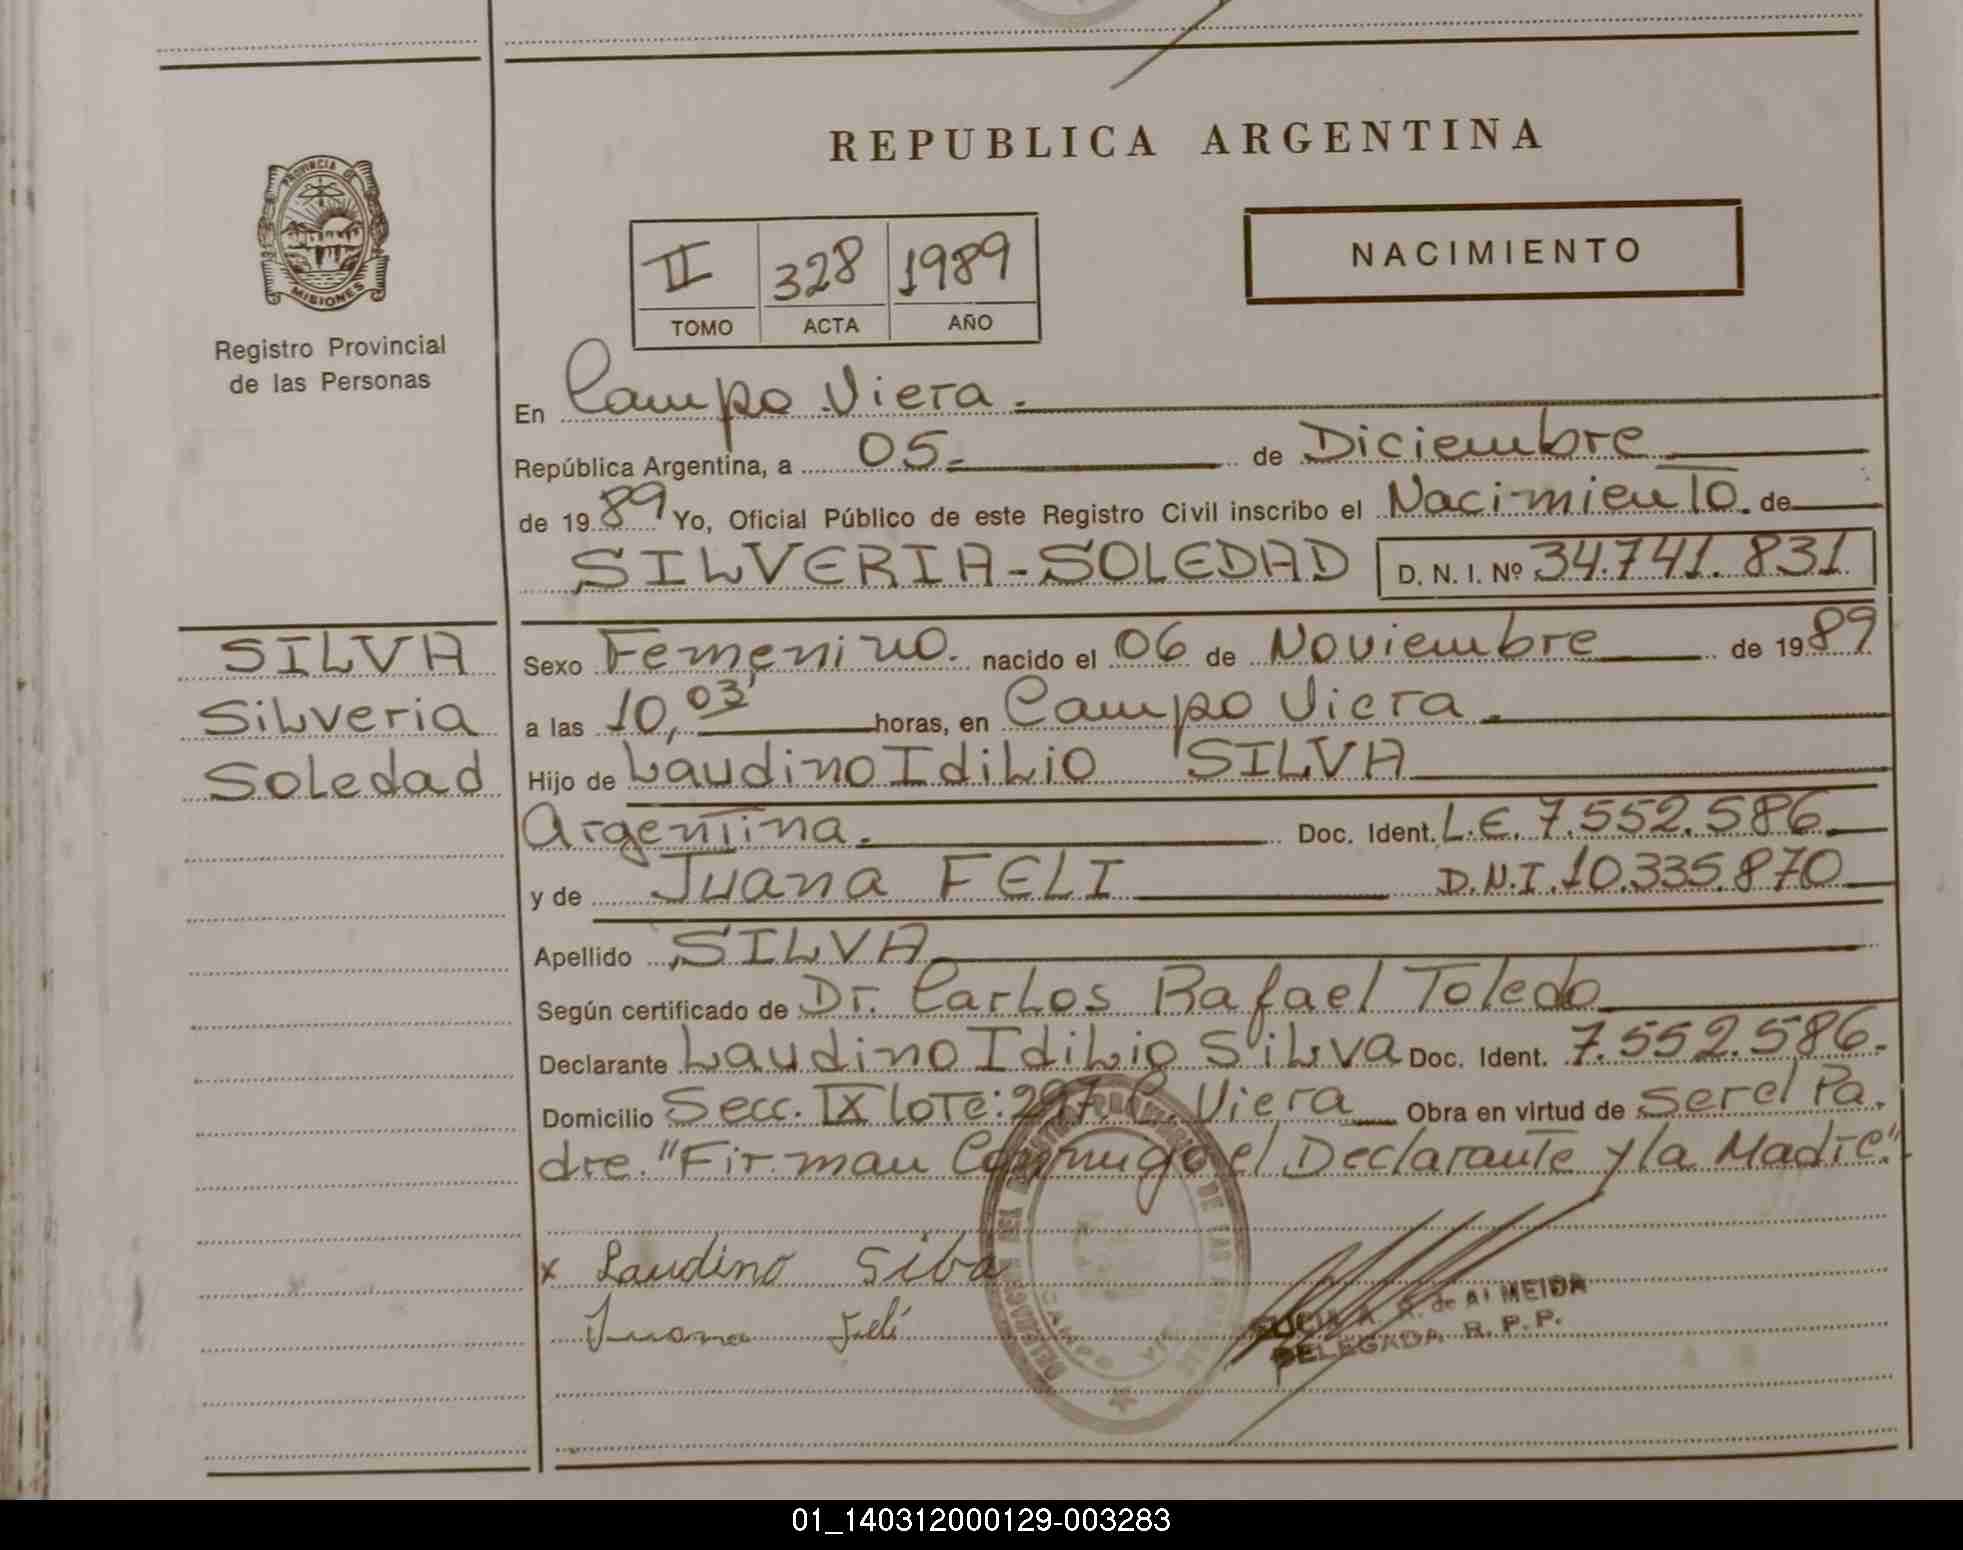 REPUBLICA ARGENTINA
PROVINCIA DE
MISIONES
Registro Provincial
de las Personas
NACIMIENTO
II 328 1989
TOMO ACTA AÑO
En Campo Viera.
República Argentina, a 05 de Diciembre
de 1989 Yo, Oficial Público de este Registro Civil inscribo el Nacimiento de
SILVERIA-SOLEDAD D. N. I. Nº 34.741.831
SILVA
Silveria
Soledad
Sexo Femenino. nacido el 06 de Noviembre de 1989
a las 10,03' horas, en Campo Viera.
Hijo de Laudino Idilio SILVA
Argentina. Doc. Ident. L.E. 7.552.586
y de Juana FELI D.N.I. 10.335.870
Apellido SILVA
Según certificado de Dr. Carlos Rafael Toledo
Declarante Laudino Idilio Silva Doc. Ident. 7.552.586.
Domicilio Secc. IX lote: 297 C. Viera Obra en virtud de ser el Pa.
dre. "Firman Conmigo el Declarante y la Madre".
x Laudino Silva
Juana Feli
A. de ALMEIDA
DELEGADA R. P. P.
01_140312000129-003283